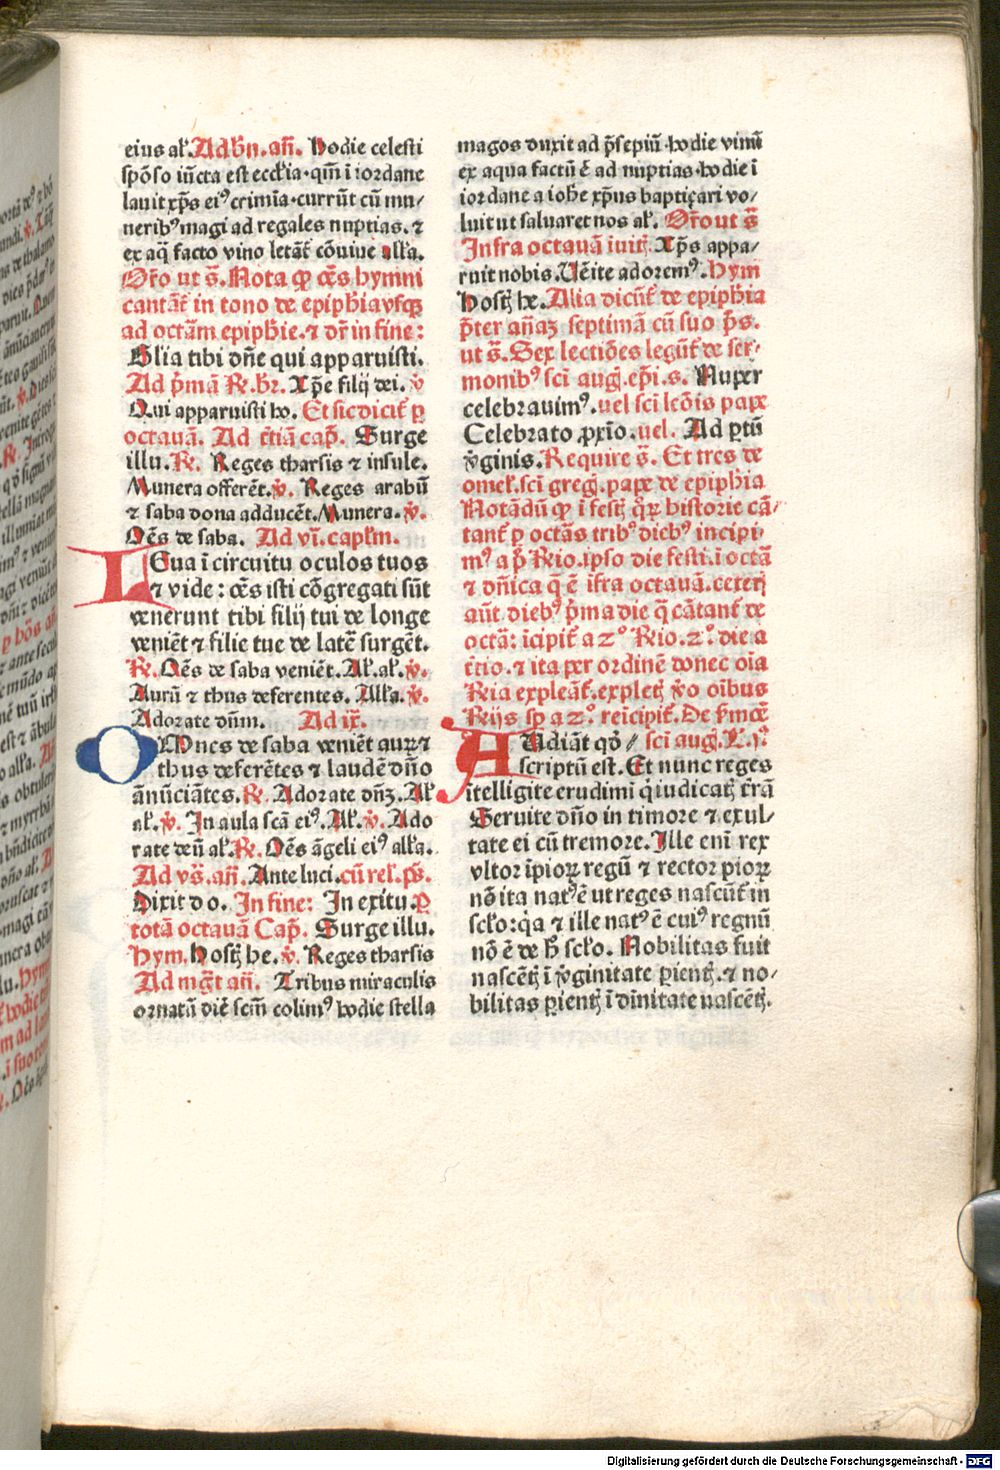 eius al̄. Ad bn̄. an̄. Hodie celesti
spōso iūcta est eccl̄ia. qm̄ ī iordane
lauit xp̄s eiꝰ crimīa. currūt cū mu/
neribꝰ magi ad regales nuptias. ⁊
ex aq̄ facto vino letāt̄ cōuiue all̄a.
Or̄o ut s̄. Nota qp̄ oēs hymni
cantāt̄ in tono de epiph̄ia vsqꝫ
ad octām epiphie. ⁊ dr̄ in fine:
Gl̄ia tibi dn̄e qui apparuisti.
Ad p̄mā R̄. br̄. Xp̄e filij dei. v̄
Qui apparuisti ho. Et sic dicit̄ ꝑ
octauā. Ad t̄tiā cap̄. Surge
illu. R̄. Reges tharsis ⁊ insule.
Munera offerēt. v̄. Reges arabū
⁊ saba dona adducēt. Munera. v̄.
Oēs de saba. Ad vi. capl̄m.
LEua ī circuitu oculos tuos
⁊ vide: oēs isti cōgregati sūt
venerunt tibi filij tui de longe
veniēt ⁊ filie tue de latē surgēt.
R̄. Oēs de saba veniēt. Al̄. al̄. v̄.
Aurū ⁊ thus deferentes. All̄a. v̄.
Adorate dn̄m. Ad ix.
OMnes de saba veniēt aurꝫ ⁊
thus deferētes ⁊ laudē dn̄o
ānūciātes. R̄. Adorate dn̄ꝫ. Al̄
al̄. v̄. In aula scā eiꝰ. Al̄. v̄. Ado
rate deū al̄. R̄. Oēs āgeli eiꝰ all̄a.
Ad vs̄. an̄. Ante luci. cū rel. ps̄.
Dixit do. In fine: In exitu. ꝑ
totā octauā Cap̄. Surge illu.
Hym. Hostꝫ he. v̄. Reges tharsis
Ad mḡt an̄. Tribus miraculis
ornatā diē scm̄ colimꝰ hodie stella
magos duxit ad p̄sepiū. hodie vinū
ex aqua factū ē ad nuptias. hodie ī
iordane a ioh̄e xp̄us baptiçari vo/
luit ut saluaret nos al̄. Or̄o ut s̄
Infra octauā iuitꝫ. Xp̄s appa/
ruit nobis. Uēite adoremꝰ. Hym
Hostꝫ he. Alia dicūt̄ de epiph̄ia
p̄ter an̄aꝫ septimā cū suo ps̄.
ut s̄. Sex lectiōes legūt̄ de ser/
monibꝰ sci augꝰ. ep̄i. s. Nuper
celebrauimꝰ. uel sci leōis pape
Celebrato ꝓxīo. uel. Ad ꝑtū
v̄ginis. Require s̄. Et tres de
omel̄. sci greg. pape de epiph̄ia
Notādū qp̄ ī festꝫ qꝝ historie cā/
tant̄ ꝑ octās tribꝰ diebꝰ incipi
mꝰ a p̄ R̄io. ipso die festi. ī octā
⁊ dn̄ica q̄ ē īfra octauā. ceterꝫ
aūt diebꝰ p̄ma die q̄ cātant̄ de
octā: īcipit̄ a 2° R̄io. 2° die a
t̄tio. ⁊ ita per ordinē donec oīa
R̄ia expleāt̄. expletꝫ v̄o oībus
R̄ijs sp̄ a 2° reicipit̄. De p̄mcē
AUdiāt qd̄ // sci aug. L. j.ª
scriptū est. Et nunc reges
ītelligite erudimi q̄ iudicatꝫ t̄rā
Seruite dn̄o in timore ⁊ exul/
tate ei cū tremore. Ille eni rex
vltor īpioꝝ regū ⁊ rector pioꝝ
nō ita natꝰ ē ut reges nascūt̄ in
scl̄o: q̄a ⁊ ille natꝰ ē cuiꝰ regnū
nō ē de h̄ scl̄o. Nobilitas fuit
nascētꝫ ī v̄ginitate ꝑientꝫ. ⁊ no/
bilitas ꝑientꝫ ī diuinitate nascētꝫ.
Digitalisierung gefördert durch die Deutsche Forschungsgemeinschaft - DFG